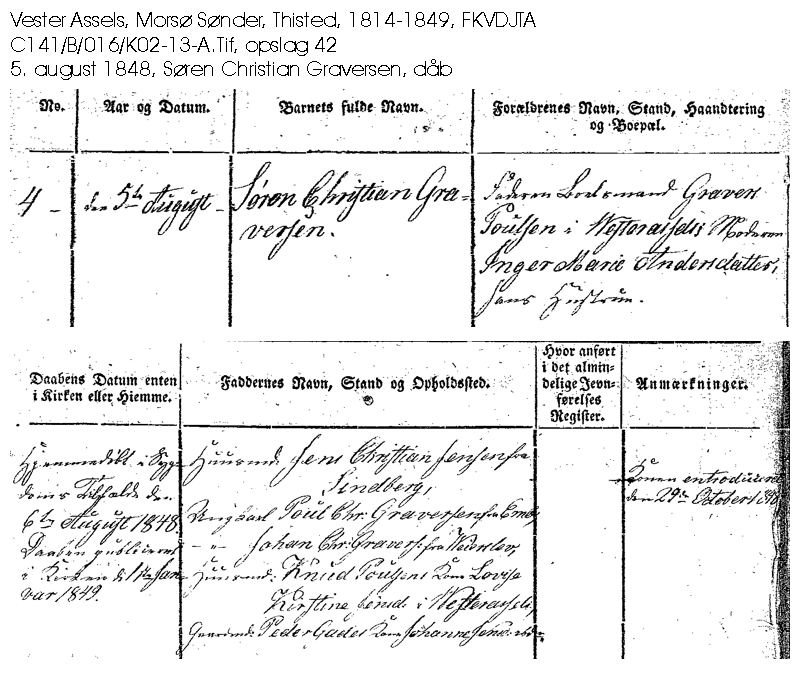 Vester Assels, Morsø Sønder, Thisted, 1814-1849, FKVDJTA
C141/B/016/K02-13-A.Tif, opslag 42
5. august 1848, Søren Christian Graversen, dåb
No.
Aar og Datum.
Barnets fulde Navn.
Forældrenes Navn, Stand, Haandtering
og Boepæl.
4 -
den 5te August -
Søren Christian Gra-
versen.
Faderen Boelsmand Graver
Poulsen i Vesterassels Moderen
Inger Marie Andersdatter,
hans Hustrue.
Daabens Datum enten
i Kirken eller Hiemme.
Faddernes Navn, Stand og Opholdssted.
Hvor anført
i det almin-
delige Jevn-
førelses
Register.
Anmærkninger.
Hjemmedøbt i Syg-
doms Tilfælde den
6te August 1848.
Daaben publiceret
i Kirken d. 1ste Jan-
var 1849.
Huusmd. Jens Christian Jensen fra
Lindberg,
Ungkarl Poul Chr. Graversen fra
- " - Johan Chr. Gravers. fra
Huusmd. Knud Poulsens Kone Lovise
Kirstine Jensd. i Vesterassels,
Gaardmd. Peder Gades Kone Johanne Jensd.
Konen introduceret
den 29de October 1848